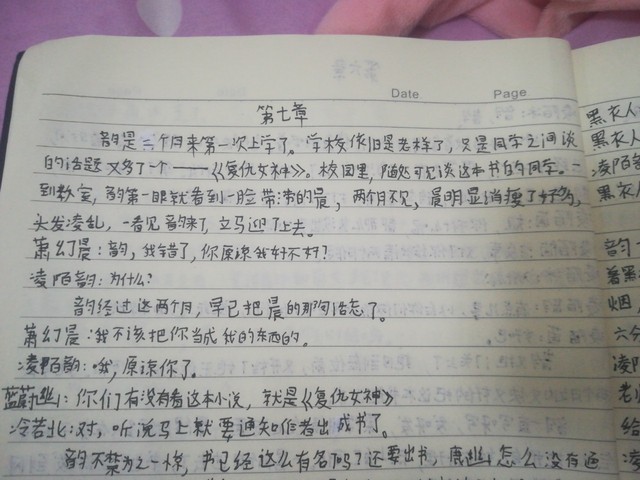 Date Page
第七章
韵是三个月来第一次上学了。学校依旧是老样子，只是同学之间谈
的话题又多了一个——《复仇女神》。校园里，随处可见谈这本书的同学。一
到教室，韵第一眼就看到一脸带沛的晨，两个月不见，晨明显消瘦了好多，
头发凌乱，一看见韵来了，立马迎了上去。
萧幻晨：韵，我错了，你原谅我好不好？
凌陌韵：为什么？
韵经过这两个月，早已把晨的那句话忘了。
萧幻晨：我不该把你当成我的东西的。
凌陌韵：哦，原谅你了。
蓝蔚幽：你们有没有看这本小说，就是《复仇女神》
冷若北：对，听说马上就要通知作者出成书了。
韵不禁为之一愣，书已经这么有名吗？还要出书，唐幽怎么没有通
黑衣人
黑衣人
凌陌
黑衣人
韵
着黑
烟，
六分
凌陌
老
给
凌